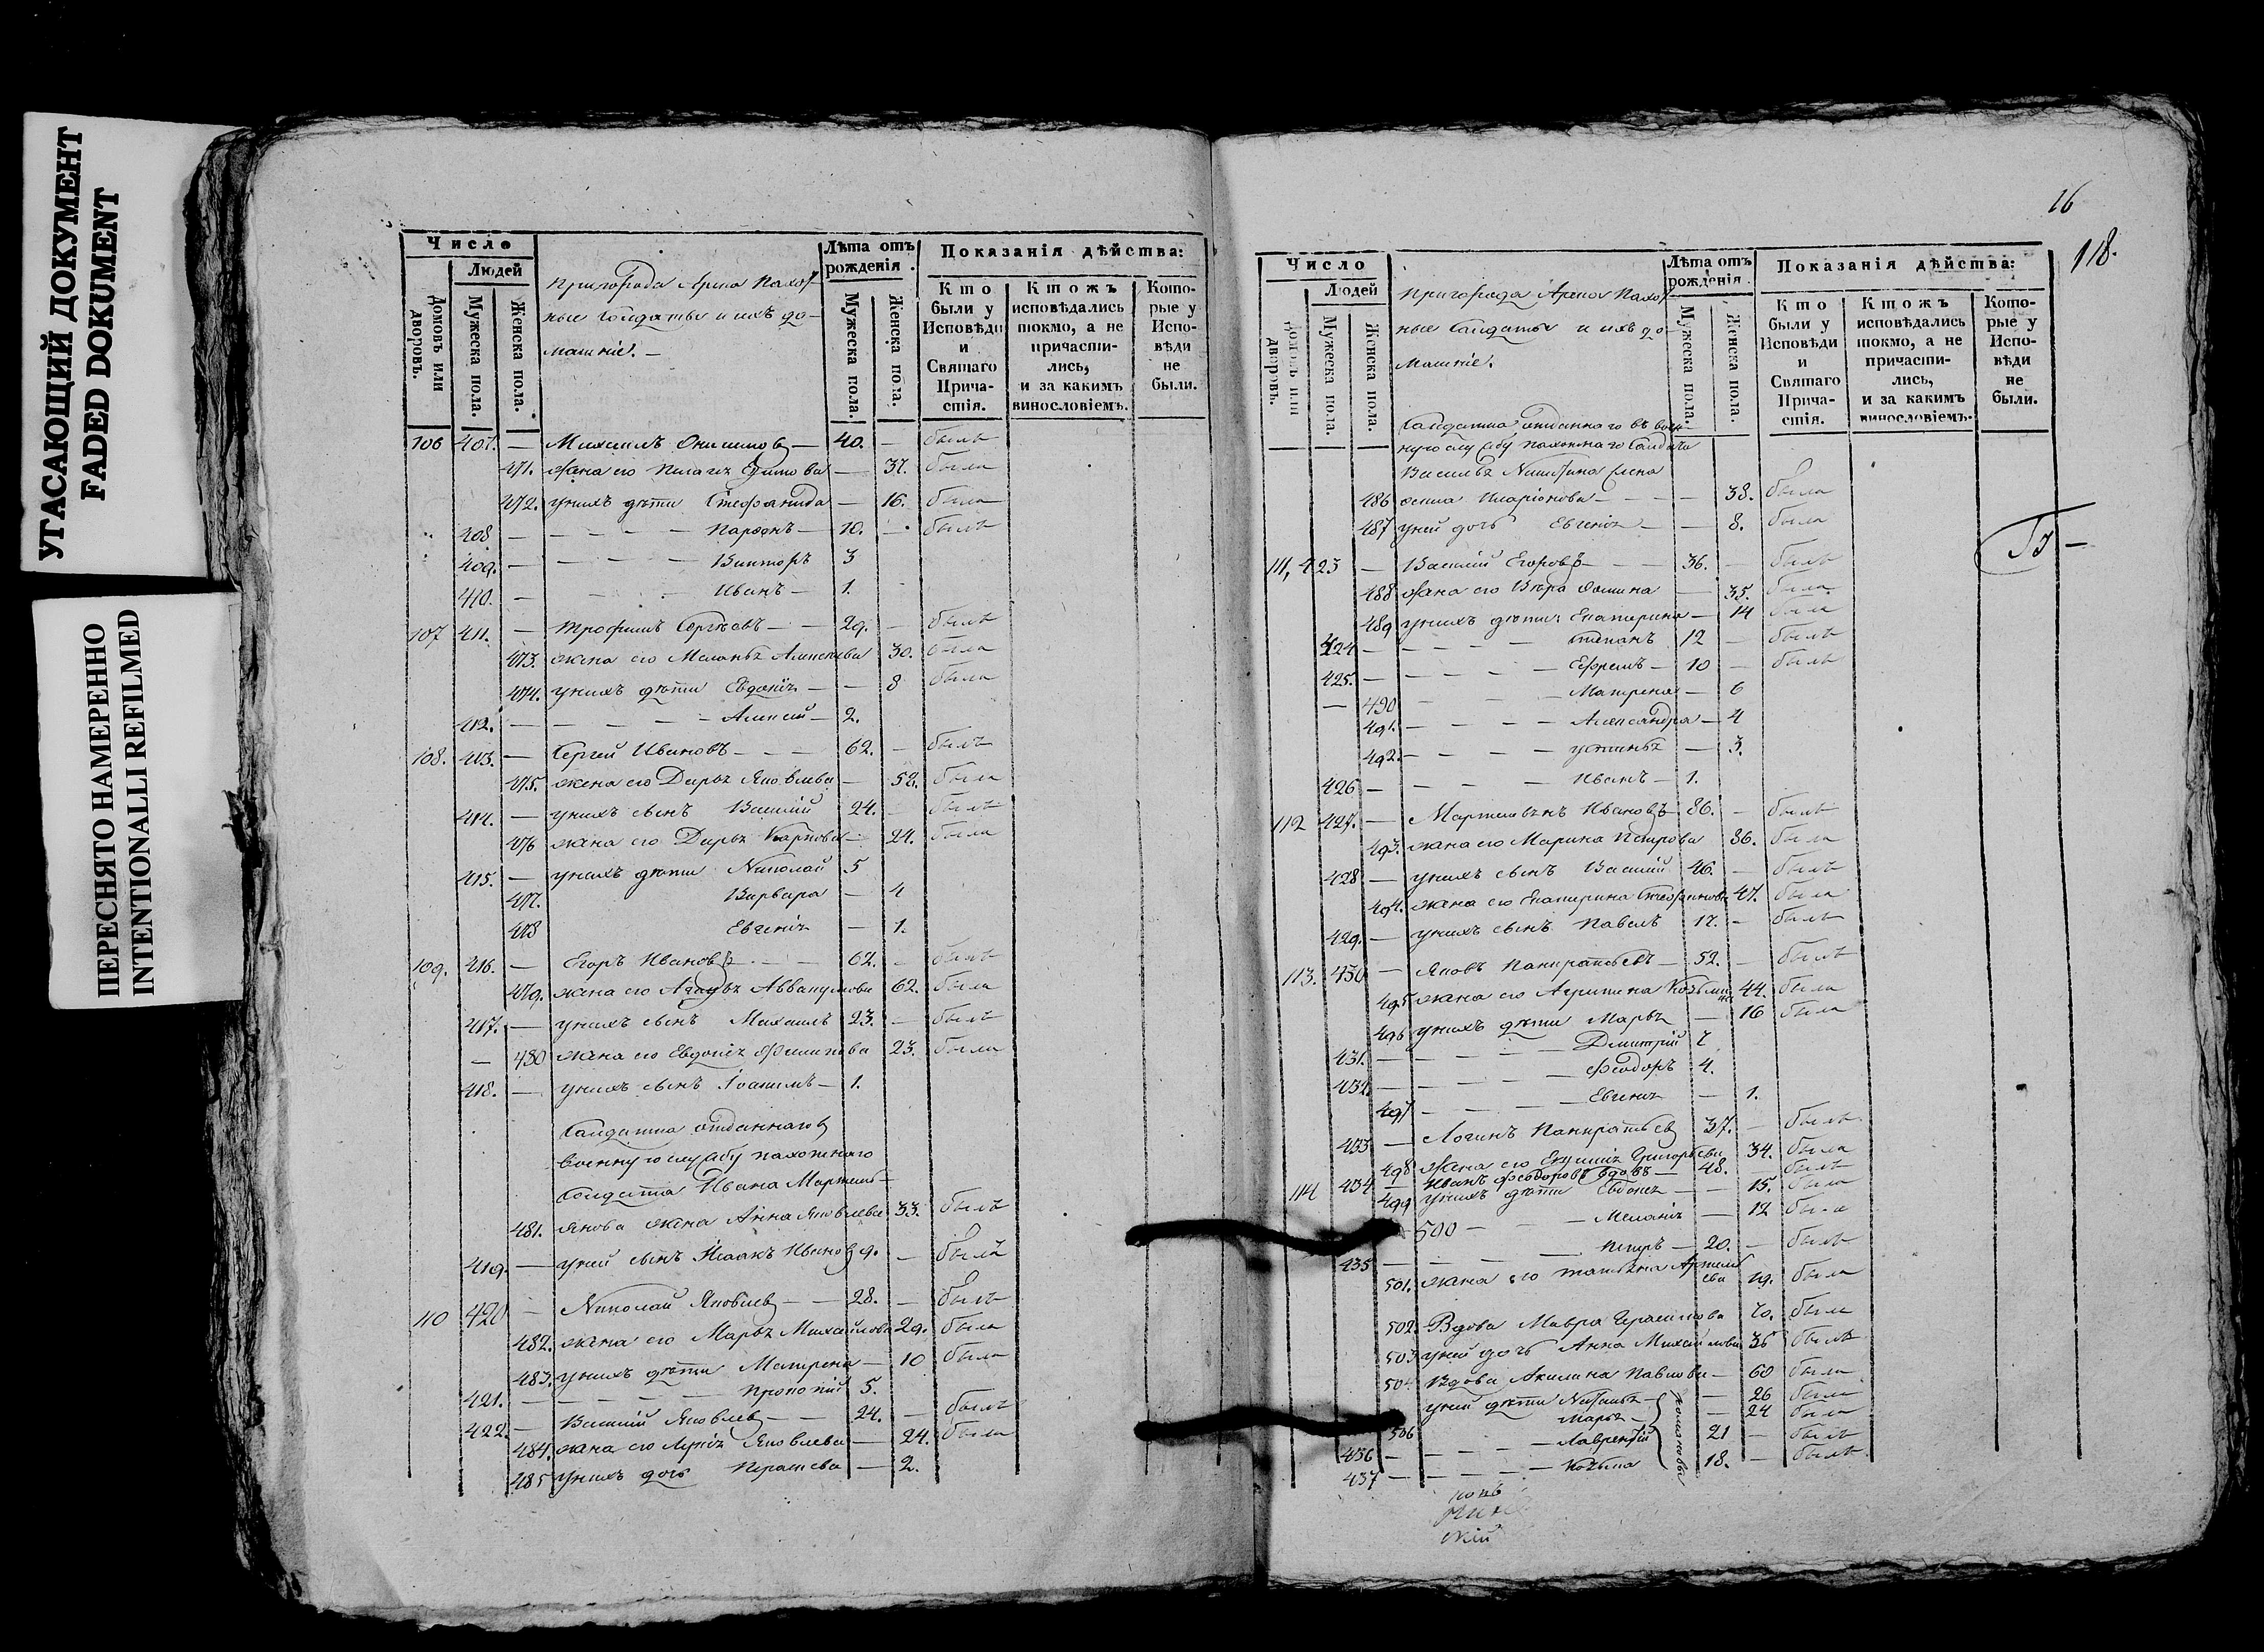 УГАСАЮЩИЙ ДОКУМЕНТ
FADED DOKUMENT
ПЕРЕСНЯТО НАМЕРЕННО
INTENTIONALLI REFILMED
Число
Людей
Домовъ или дворовъ.
Мужеска пола.
Женска пола.
Пригорода Арска Пахот-
ные Солдаты и ихъ до-
машніе. —
Лѣта отъ рожденія.
Мужеска пола.
Женска пола.
Показанія дѣйства:
Кто были у Исповѣди и Святаго Прича-стія.
Ктожъ исповѣдались токмо, а не причасти-лись, и за какимъ винословіемъ.
Кото-рые у Испо-вѣди не были.
106 407. — Михаилъ Онисимовъ — 40. — былъ
471. жена его Пелагея Титова — 37. была
472. у нихъ дѣти Стефанида — 16. была
408 — — — — Парѳенъ — 10. — былъ
409. — — — — Викторъ 3
410. — — — Иванъ — 1.
107 411. — Трофимъ Сергѣевъ — — 29. — былъ
473. жена его Меланья Алексѣева 30. была
474. у нихъ дѣти Евдокія — — 8 была
412. — — — — — Алексѣй — 2.
108. 413. — Сергей Ивановъ — — — 62. — былъ
475. жена его Дарья Яковлева — 58. была
414. — у нихъ сынъ Василій 24. — былъ
476 жена его Дарья Карпова — 24. была
415. — у нихъ дѣти Николай 5
477. Варвара — 4
478 Евгенія — 1.
109. 416. — Егоръ Ивановъ — — 62. — былъ
479. жена его Агафья Аввакумова 62. была
417. — у нихъ сынъ Михаилъ 23. — былъ
— 480 жена его Евдокія Филипова 23. была
418. — у нихъ сынъ Іоакимъ — 1.
Солдатка отданнаго въ
военную службу пахотнаго
Солдата Ивана Мартемь-
481. янова жена Анна Яковлева 33. былъ
419. — у ней сынъ Исаакъ Ивановъ 9. — была
110 420 — Николай Яковлевъ — — 28. — былъ
482. жена его Марья Михайлова 29. была
483. у нихъ дѣти Матрена — 10 была
421. — — — — Прокопій 5.
422. — Василій Яковлевъ — — 24. — былъ
484. жена его Лукія Яковлева — 24. была
485 у нихъ дочь Параскева — 2.
16
118.
Число
Людей
Домовъ или дворовъ.
Мужеска пола.
Женска пола.
Пригорода Арска Пахот-
ные Солдаты и ихъ до-
машніе.
Лѣта отъ рожденія.
Мужеска пола.
Женска пола.
Показанія дѣйства:
Кто были у Исповѣди и Святаго Прича-стія.
Ктожъ исповѣдались токмо, а не причасти-лись, и за какимъ винословіемъ.
Кото-рые у Испо-вѣди не были.
Солдатка отданнаго въ воен-
ную службу пахотнаго Солдата
Василья Никитина
486 Иларіонова — — — — 38. была
487 у ней дочь Евгенія — — 8. была
111, 423 — Василій Егоровъ — — 36. — былъ
488 жена его Вѣра Ѳомина — 35. была
489 у нихъ дѣти Екатерина — 14 была
424 — — — — Степанъ 12 — былъ
425. — — — — Ефремъ — 10 — былъ
— 490 — — — Матрена — 6
491. — — — — Александра — 4
492. — — — — Устинья — 3.
426 — — — — Иванъ — 1.
112 427. — Мартемьянъ Ивановъ 86. — былъ
493. жена его Марина Петрова 86. была
428 — у нихъ сынъ Василій 46. — былъ
494. жена его Екатерина Стефанова 47. была
429. — у нихъ сынъ Павелъ 17. — былъ
113. 430 — Яковъ Панкратьевъ — 52. — былъ
495 жена его Агрипина Козьмина 44. была
496 у нихъ дѣти Марья — 16 была
431. — — — — Дмитрій 7
432. — — — — Ѳеодоръ 4.
497 — — — — Евгенія — 1.
433 — Логинъ Панкратьевъ 37. — былъ
498 жена его Григорьева 34. была
114 434 — Иванъ Ѳеодоровъ вдовъ — 48. — былъ
499 у нихъ дѣти Евдокія — — 15. была
500 — — — Меланія — 12 была
435 — — — — Петръ — 20. — былъ
501. жена его Татьяна Артемьева 19. была
502. Вдова Мавра Герасимова 70. была
503 у ней дочь Анна Михайлова 36 была
504 Вдова Акилина Павлова — 60 была
у ней дѣти Наталья — — 26 была
506 Марья — — 24 была
436 — — — — Лаврентій 21 — былъ
437 — — — — Козьма 18. — былъ